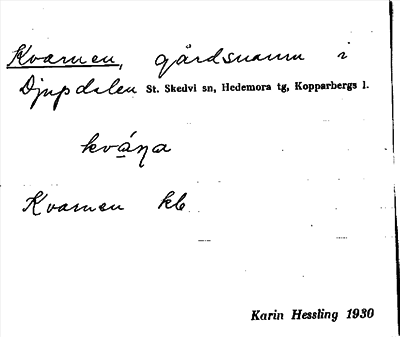 Kvarnen, gårdsnamn i
Djupdalen St. Skedvi sn, Hedemora tg, Kopparbergs l.
kvá̱ŋa
Kvarnen kb
Karin Hessling 1930